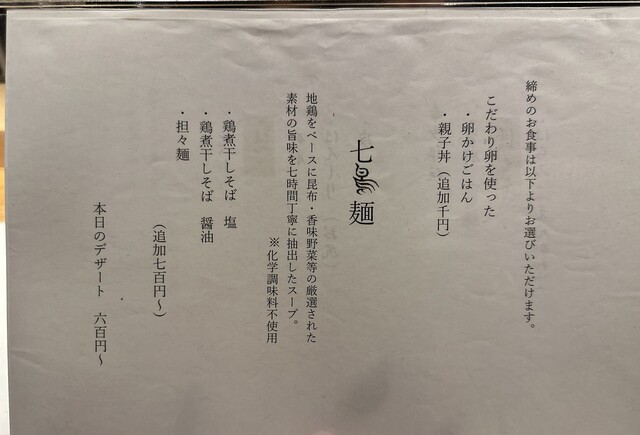 締めのお食事は以下よりお選びいただけます。
こだわり卵を使った
・卵かけごはん
・親子丼（追加千円）
七鳥麺
地鶏をベースに昆布・香味野菜等の厳選された
素材の旨味を七時間丁寧に抽出したスープ。
※化学調味料不使用
・鶏煮干しそば　塩
・鶏煮干しそば　醤油
・担々麺
（追加七百円～）
本日のデザート　六百円～